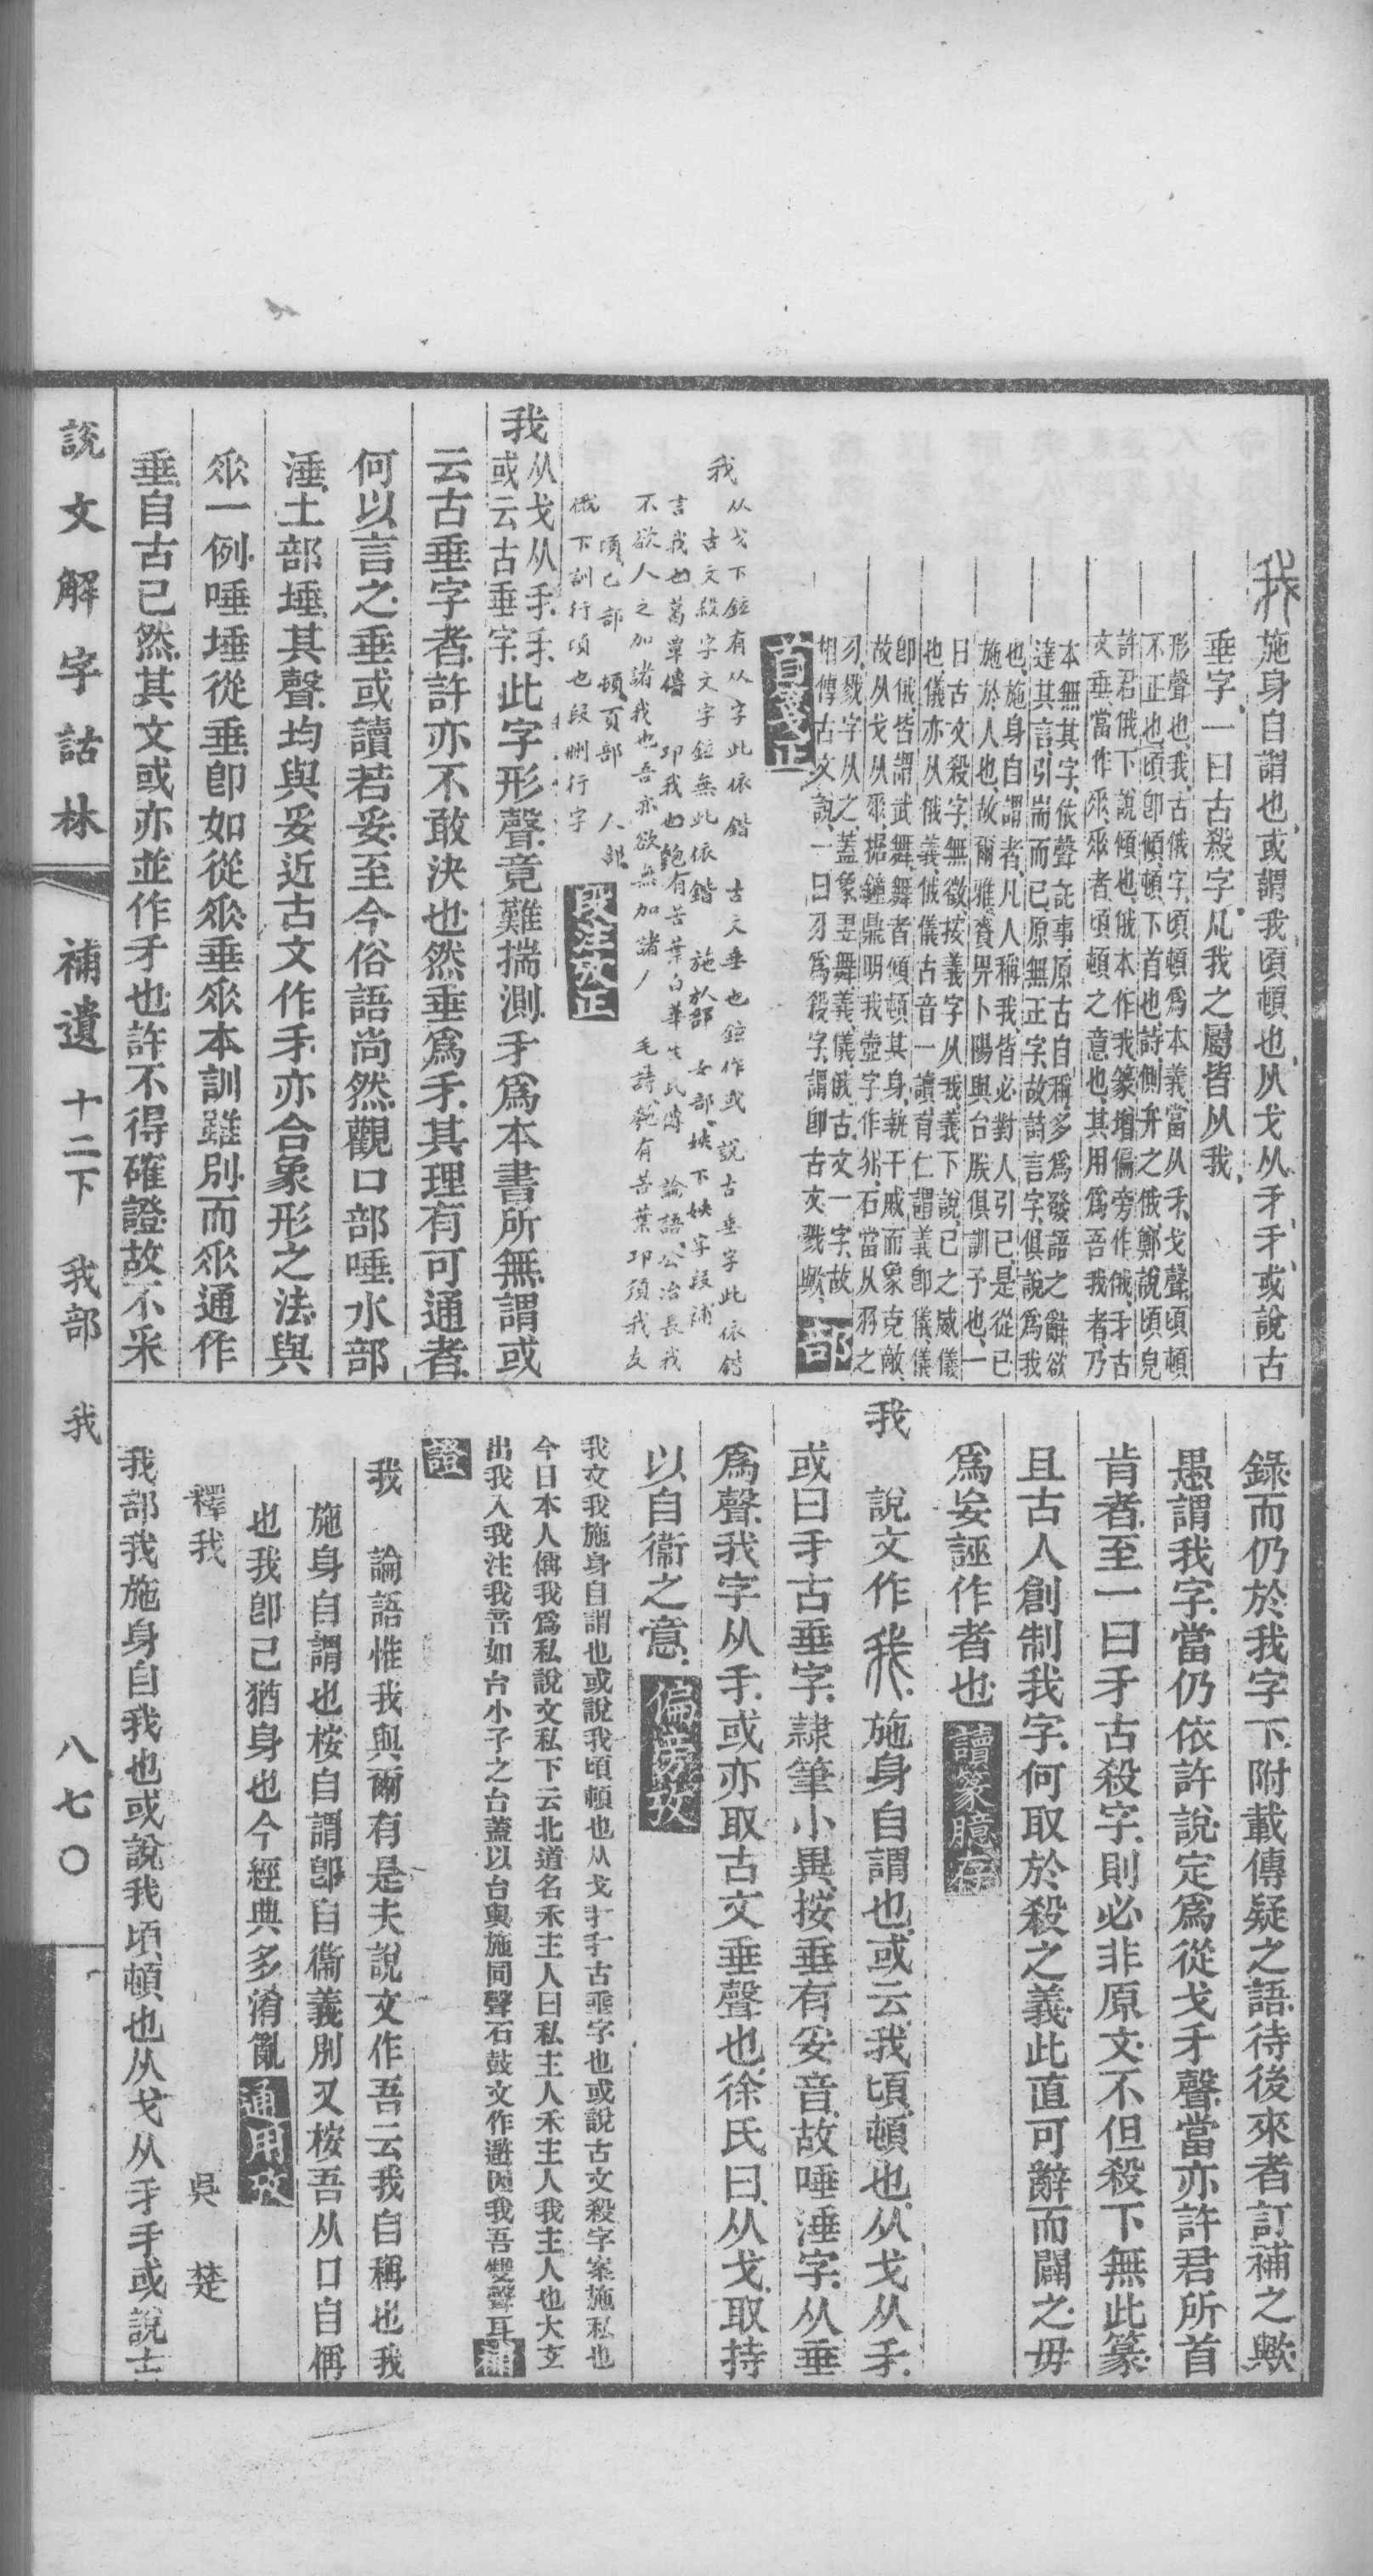 我施身自謂也或謂我頃頓也从戈从𠄒𠄒或說古
垂字一曰古殺字凡我之屬皆从我
形聲也我古俄字頃頓爲本義當从𠄒戈聲頃頓
不正也頃卽傾頓下首也詩側弁之俄鄭說頃皃
許君俄下說傾也俄本作我篆增偏旁作俄𠄒古
文垂當作𠂹𠂹者頃頓之意也其用爲吾我者乃
本無其字依聲託事原古自稱多爲發語之辭欲
達其言引耑而已原無正字故詩言字俱說爲我
也施身自謂者凡人稱我皆必對人引己是從己
施於人也故爾雅賚畀卜陽與台朕俱訓予也一
曰古文殺字無徵按義字从我義下說己之威儀
也儀亦从俄義俄儀古音一讀肯仁謂義卽儀儀
卽俄皆謂武舞舞者傾頓其身執干戚而象克敵
故从戈从𠂹據鐘鼎明我壺字作 石當从 之
 戮字从之蓋象翌舞義儀俄古文一字故
相傳古文說一曰 爲殺字謂卽古文戮歟 部
首箋正
我 从戈下鉉有从字此依鍇 古文垂也鉉作或說古垂字此依鍇
古文殺字文字鉉無此依鍇 施於部 女部姎下姎字段補
言我也葛覃傳 卬我也匏有苦葉白華生民傳 論語公冶長我
不欲人之加諸我也吾亦欲無加諸人 毛詩匏有苦葉卬須我友
頃匕部 頓頁部 人部
俄下訓行頃也段刪行字 段注攷正
我 从戈从𠄒𠄒
或云古垂字 此字形聲竟難揣測𠄒爲本書所無謂或
云古垂字者許亦不敢決也然垂爲𠄒其理有可通者
何以言之垂或讀若妥至今俗語尚然觀口部唾水部
涶土部埵其聲均與妥近古文作𠄒亦合象形之法與
𠂹一例唾埵從垂卽如從𠂹垂𠂹本訓雖別而𠂹通作
垂自古已然其文或亦並作𠄒也許不得確證故不采
錄而仍於我字下附載傳疑之語待後來者訂補之歟
愚謂我字當仍依許說定爲從戈𠄒聲當亦許君所首
肯者至一曰𠄒古殺字則必非原文不但殺下無此篆
且古人創制我字何取於殺之義此直可辭而闢之毋
爲妄誣作者也 讀篆臆存
我 說文作我施身自謂也或云我頃頓也从戈从𠄒
或曰𠄒古垂字隷筆小異按垂有妥音故唾涶字从垂
爲聲我字从𠄒或亦取古文垂聲也徐氏曰从戈取持
以自衞之意 偏旁攷
我文我施身自謂也或說我頃頓也从戈𠄒𠄒古垂字也或說古文殺字案施私也
今日本人偁我爲私說文私下云北道名禾主人曰私主人禾主人我主人也大玄
出我入我注我音如台小子之台蓋以台與施同聲石鼓文作䢩因我吾雙聲耳 補
證
我 論語惟我與爾有是夫說文作吾云我自稱也我
施身自謂也桉自謂卽自衞義別又桉吾从口自偁
也我卽己猶身也今經典多淆亂 通用攷
釋我 吳楚
我部我施身自我也或說我頃頓也从戈从𠄒𠄒或說古
說文解字詁林 補遺 十二下 我部 我 八七〇